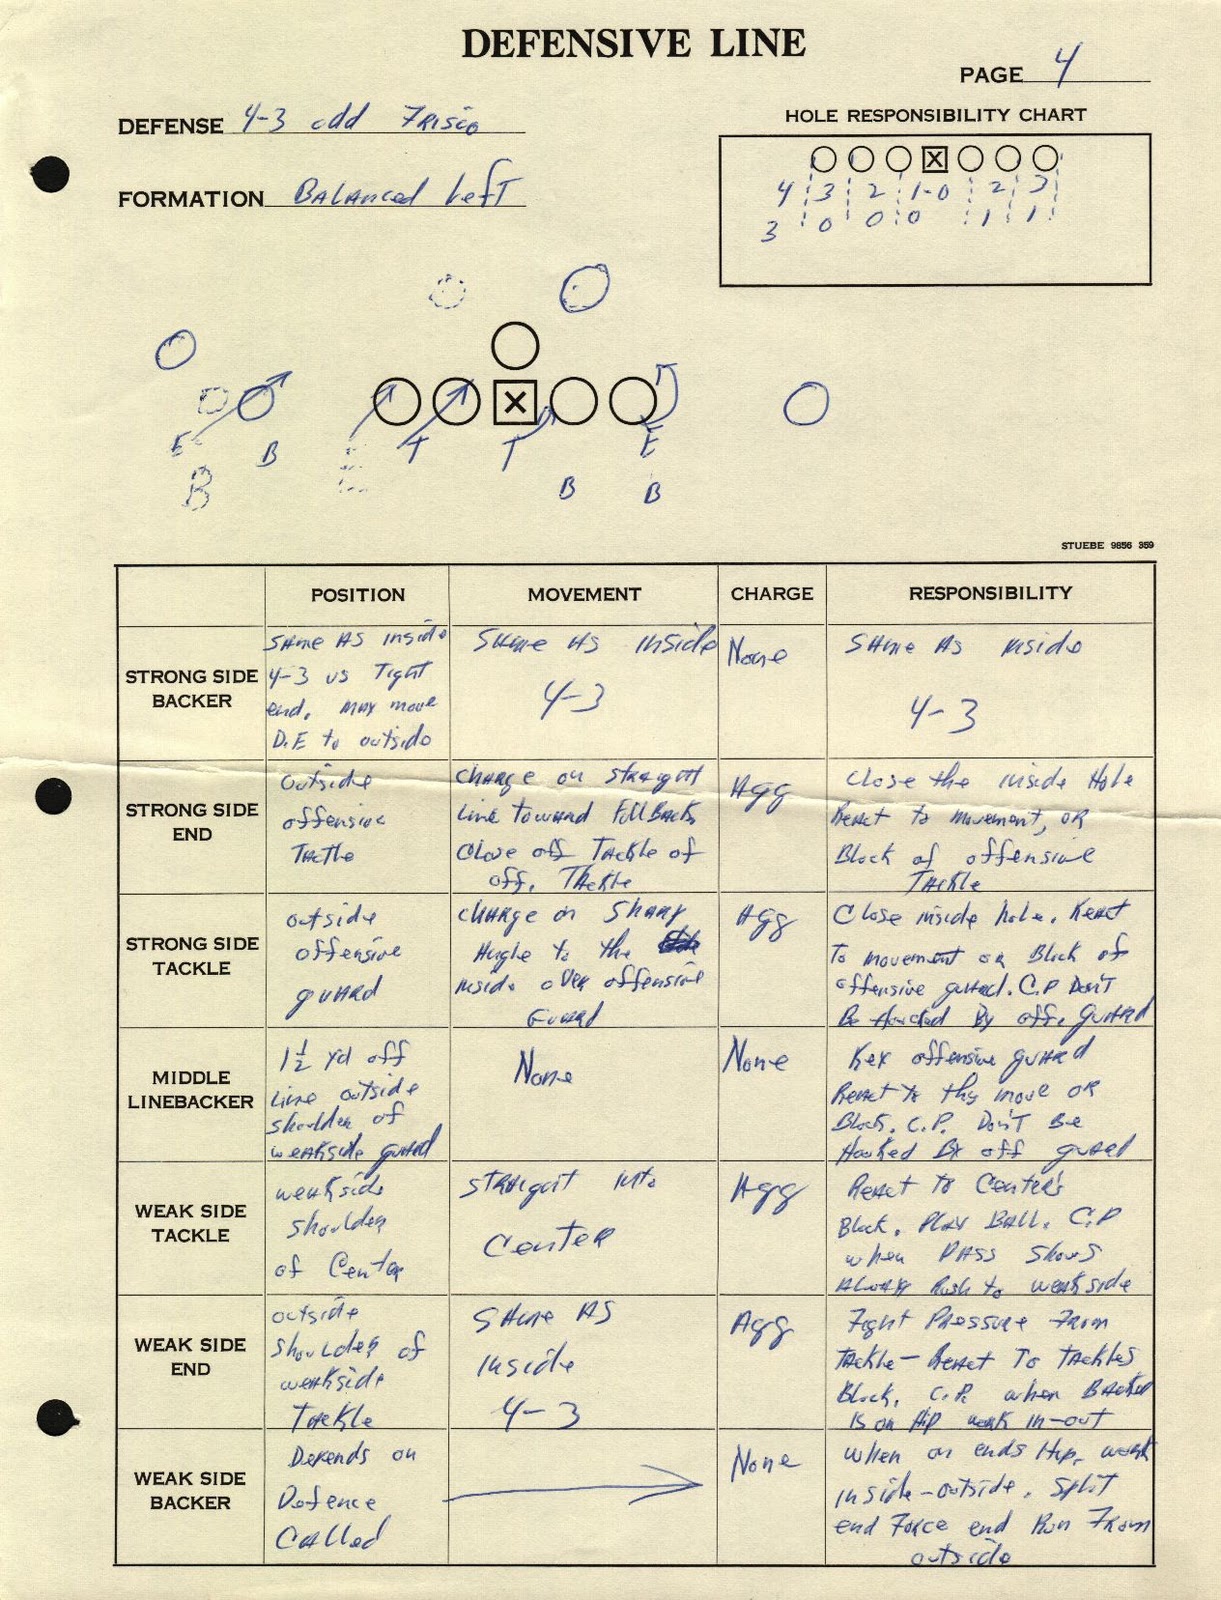 DEFENSIVE LINE
PAGE 4
DEFENSE 4-3 odd Frisco
HOLE RESPONSIBILITY CHART
FORMATION Balanced Left
X
4 3 2 1-0 2 3
3 0 0 0 1 1
X
E B T T E
B B B
STUEBE 9856 359
POSITION MOVEMENT CHARGE RESPONSIBILITY
STRONG SIDE
BACKER
Same as inside
4-3 vs Tight
end, may move
D.E to outside
Same as inside
4-3
None
Same as inside
4-3
STRONG SIDE
END
outside
offensive
Tackle
Charge on straight
Line toward Fullback
Close off Tackle of
off. Tackle
Agg
Close the inside Hole
React to movement, or
Block of offensive
Tackle
STRONG SIDE
TACKLE
outside
offensive
guard
Charge on Sharp
Angle to the
inside over offensive
Guard
Agg
Close inside hole. React
To movement or Block of
offensive guard. C.P Don't
Be Hooked By off. guard
MIDDLE
LINEBACKER
1 1/2 yd off
Line outside
shoulder of
weakside guard
None
None
Key offensive guard
React to thy move or
Block. C.P. Don't Be
Hooked By off guard
WEAK SIDE
TACKLE
weakside
shoulder
of Center
straight into
Center
Agg
React to Center's
Block. Play Ball. C.P
when Pass shows
Always Rush to weakside
WEAK SIDE
END
outside
shoulder of
weakside
Tackle
Same as
inside
4-3
Agg
Fight Pressure From
Tackle - React To Tackles
Block. C.P. when Backer
is on Hip work in-out
WEAK SIDE
BACKER
Depends on
Defence
Called
None
when on ends Hip, work
inside-outside. Split
end Force end Run From
outside